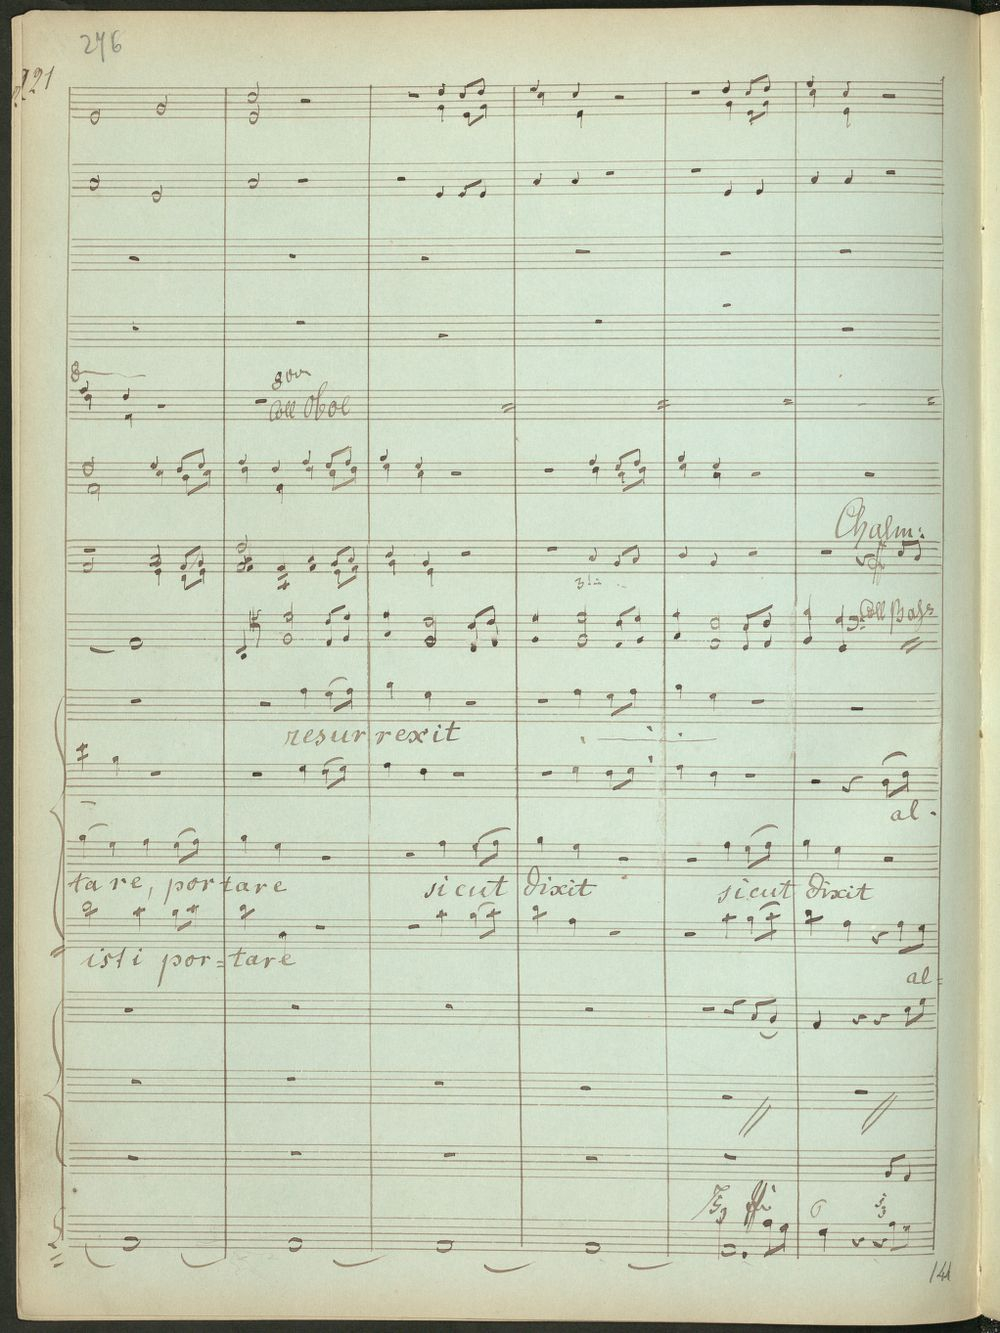 276
221
8
8va
Coll Oboe
Chalm:
ff
Coll Bass
resurrexit
al-
tare, portare
sicut dixit
sicut dixit
isti por=tare
al=
6
5
3
141